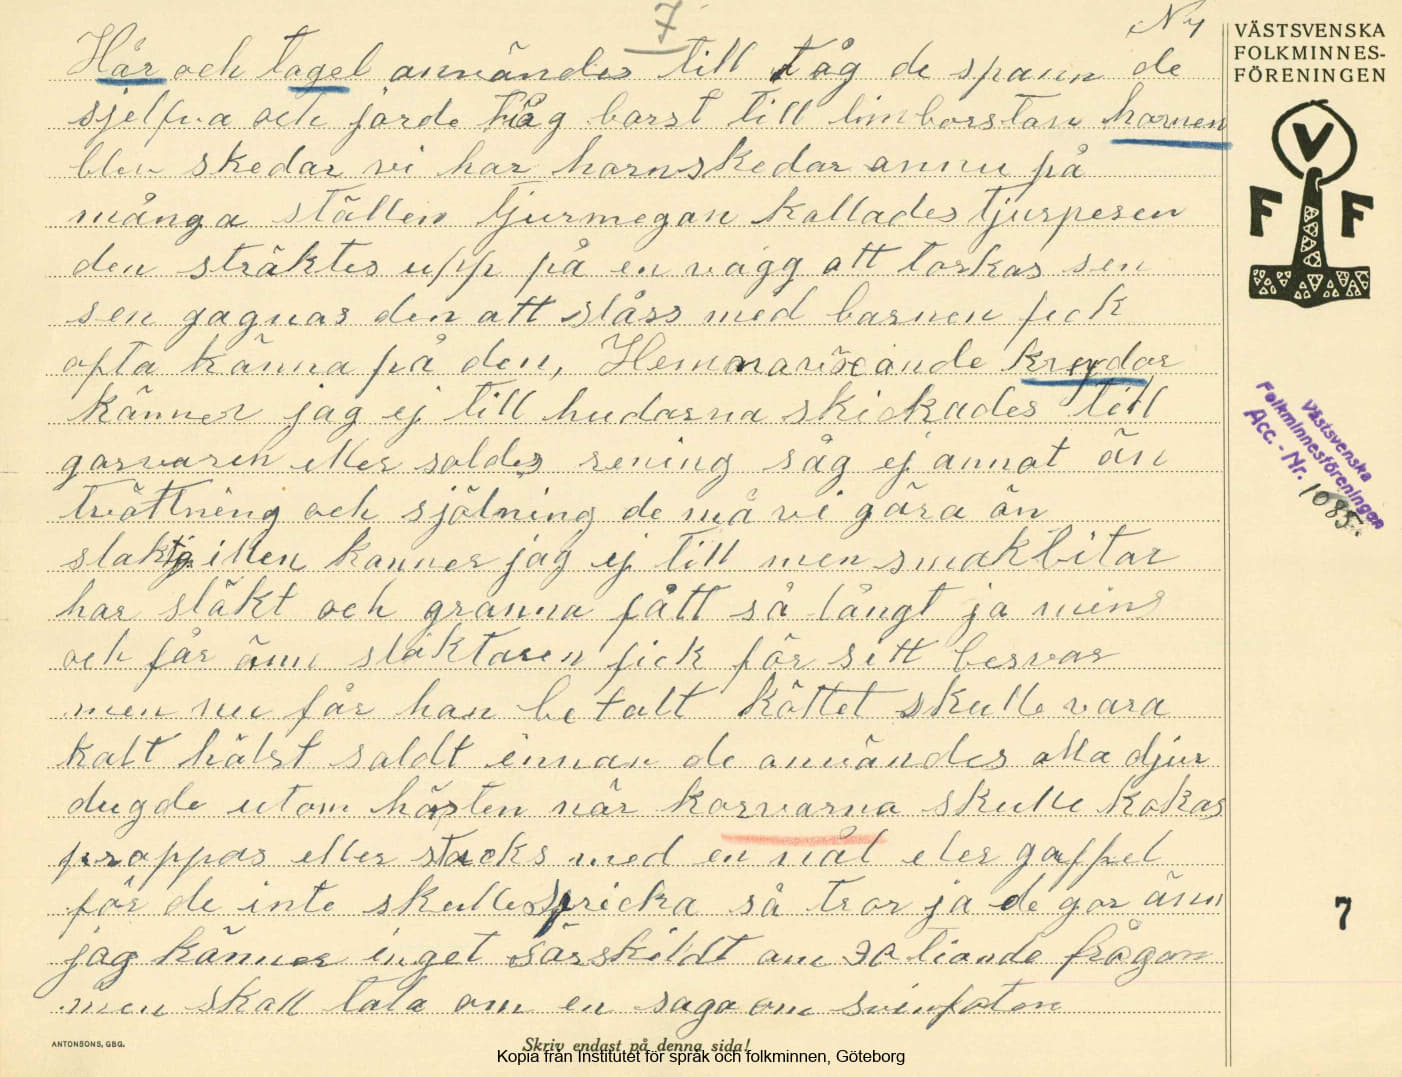 7
N 4
VÄSTSVENSKA
FOLKMINNES-
FÖRENINGEN
Hår och tagel användes till tåg de spann de
sjelfva och jorde tåg borst till limborstan hornen
blev skedar vi har hornskedar annu på
många ställen tjurmegan kallades tjurpesen
den sträktes upp på en vägg att torkas sen
sen gagnas den att slåss med barnen fick
ofta känna på den, Hemmavãxande krydor
känner jag ej till hudarna skickades till
garvaren eller saldes rening såg ej annat än
tvättning och sjölning de må vi göra än
slaktgillen kanner jag ej till men smakbitar
har släkt och granna fått så långt ja mins
och får änn slaktaren fick för sitt besvar
men nu får han betalt köttet skulle vara
kalt hälst saldt innan de användes alla djur
dugde utom hästen när korvarna skulle kokas
proppas eller stacks med en nål eler gaffel
för de inte skulle spricka så tror ja de gor änn
jag känner inget särskildt om 30 tiande frågan
men skall tala om en saga om svinfoten
V
F F
Västsvenska
Folkminnesföreningen
Acc. - Nr. 1085.
7
ANTONSONS, GBG.
Skriv endast på denna sida!
Kopia från Institutet för språk och folkminnen, Göteborg